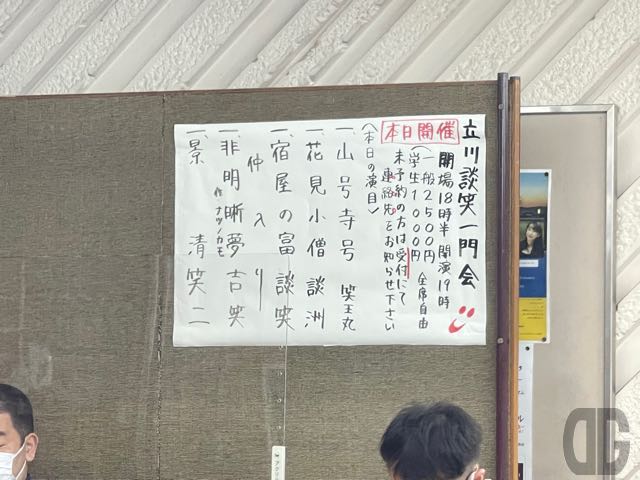 立川談笑一門会
本日開催
開場18時半 開演19時
(一般2500円
(学生1000円
全席自由
未予約の方は受付にて
連絡先をお知らせ下さい
〈本日の演目〉
一、山号寺号 笑王丸
一、花見小僧 談洲
一、宿屋の富 談笑
仲入り
一、非明晰夢 吉笑
作 ナツノカモ
一、景清 笑二
DG